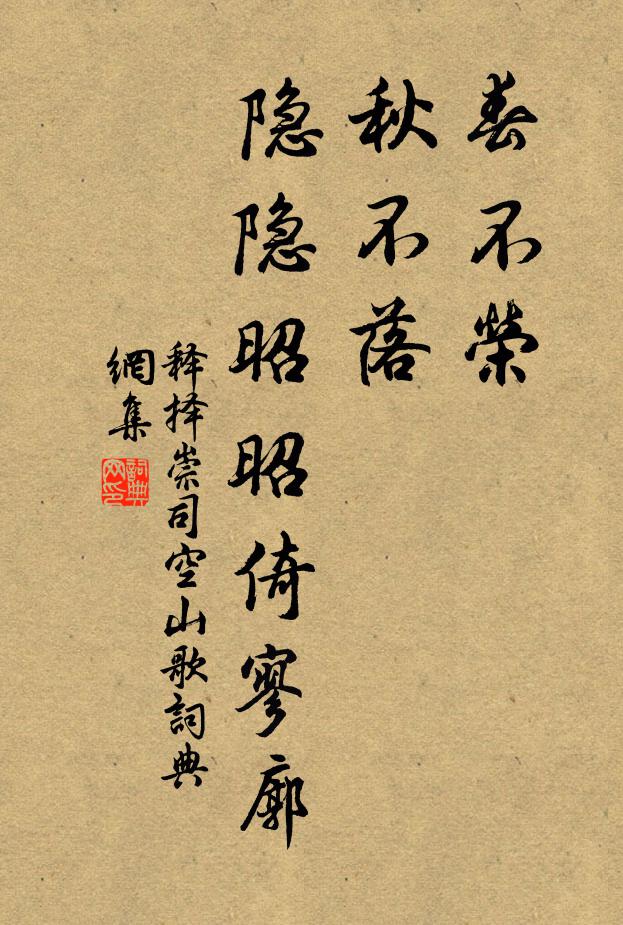 春不榮
秋不落
隐隐昭昭倚寥廓
释择崇司空山歌詞典
網集
詞典網印